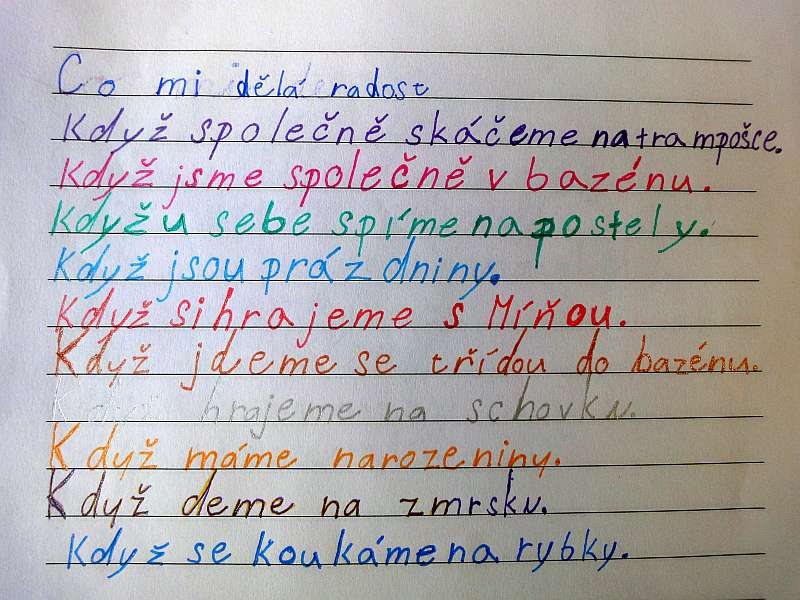 Co mi dělá radost
Když společně skáčeme na trampošce.
Když jsme společně v bazénu.
Když u sebe spíme na postely.
Když jsou prázdniny.
Když si hrajeme s Míňou.
Když jdeme se třídou do bazénu.
Když hrajeme na schovku.
Když máme narozeniny.
Když deme na zmrsku.
Když se koukáme na rybky.